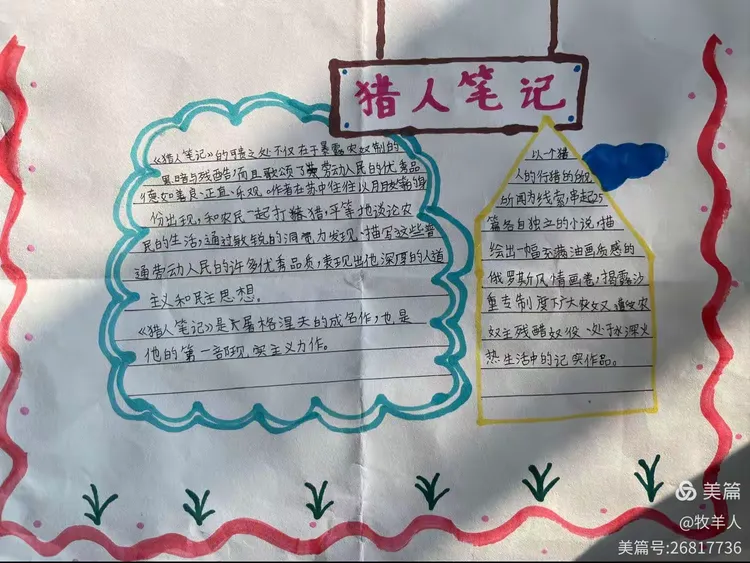 猎人笔记
《猎人笔记》的可贵之处不仅在于暴露农奴制的
黑暗与残酷,而且歌颂了劳动人民的优秀品
德如善良、正直、乐观。作者在书中往往以朋友的身
份出现,和农民一起打猎,平等地谈论农
民的生活,通过敏锐的洞察力发现、描写这些普
通劳动人民的许多优秀品质,表现出他深厚的人道
主义和民主思想。
《猎人笔记》是屠格涅夫的成名作,也是
他的第一部现实主义力作。
以一个猎
人的行猎的
所闻为线索,串起25
篇各自独立的小说,描
绘出一幅充满油画质感的
俄罗斯风情画卷,揭露沙
重专制度下广大农奴遭受农
奴主残酷奴役、处于水深火
热生活中的记实作品。
美篇
@牧羊人
美篇号:26817736